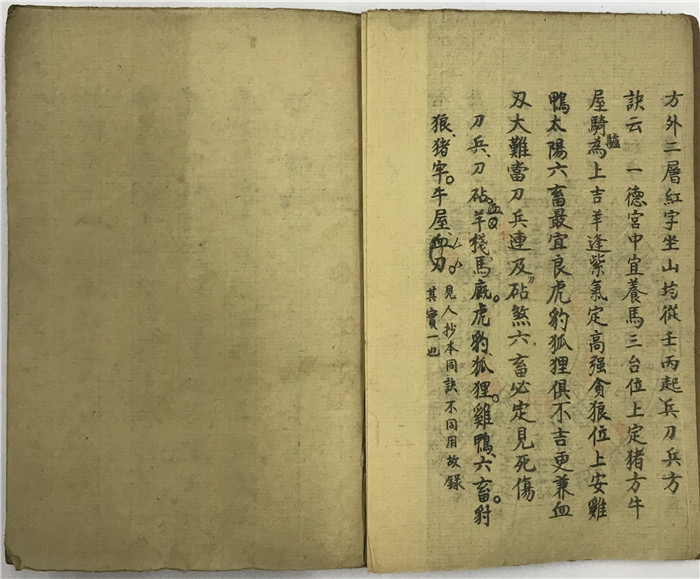 方外二層紅字坐山均從壬丙起兵刀兵方
訣云 一德宮中宜養馬三台位上定猪方牛
屋騎為驢上吉羊逢紫氣定高强貪狼位上安雞
鴨太陽六畜最宜良虎豹狐狸俱不吉更兼血
刃大難當刀兵連及砧煞六畜必定見死傷
刀兵、刀砧。血刃羊棧、馬廐。虎豹、狐狸。雞鴨、六畜。豺
狼、猪牢。牛屋、血刀。
見人抄本同訣不同用故錄
其實一也